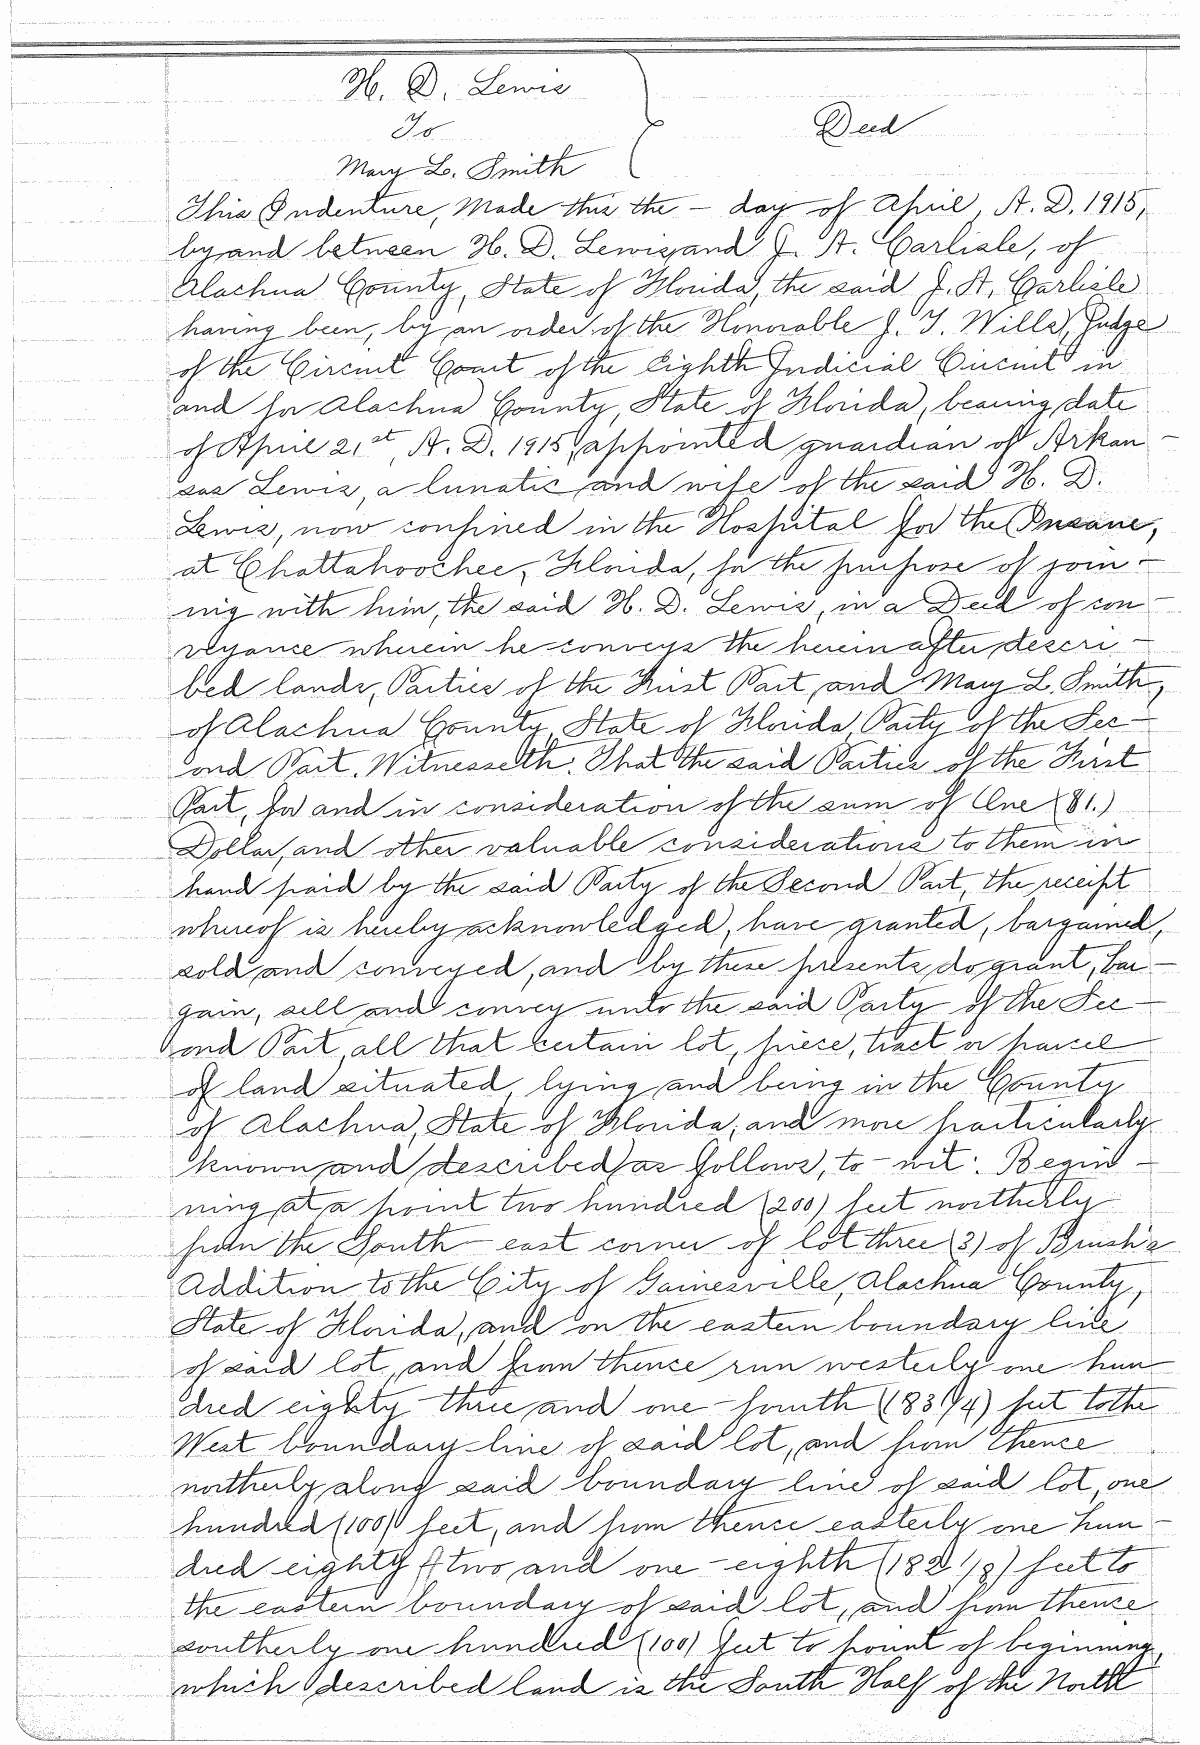 H. D. Lewis
To
Deed
Mary L. Smith
This Indenture, Made this the - day of April, A. D. 1915,
by and between H. D. Lewis, and J. A. Carlisle, of
Alachua County, State of Florida, the said J. A. Carlisle
having been, by an order of the Honorable J. T. Wills, Judge
of the Circuit Court of the Eighth Judicial Circuit in
and for Alachua County, State of Florida, bearing date
of April 21st, A. D. 1915, appointed guardian of Arkan-
sas Lewis, a lunatic and wife of the said H. D.
Lewis, now confined in the Hospital for the Insane,
at Chattahoochee, Florida, for the purpose of join-
nig with him, the said H. D. Lewis, in a Deed of con-
veyance wherein he conveys the hereinafter descri-
bed lands, Parties of the First Part, and Mary L. Smith,
of Alachua County, State of Florida, Party of the Sec-
ond Part. Witnesseth: That the said Parties of the First
Part, for and in consideration of the sum of One ($1.)
Dollar, and other valuable considerations to them in
hand paid by the said Party of the Second Part, the receipt
whereof is hereby acknowledged, have granted, bargained,
sold and conveyed, and by these presents, do grant, bar-
gain, sell and convey unto the said Party of the Sec-
ond Part, all that certain lot, piece, tract or parcel
of land situated, lying and being in the County
of Alachua, State of Florida, and more particularly
known and described as follows, to-wit: Begin-
ning at a point two hundred (200) feet northerly
from the South-east corner of lot three (3) of Brush's
Addition to the City of Gainesville, Alachua County,
State of Florida, and on the eastern boundary line
of said lot, and from thence run westerly one hun-
dred eighty-three and one-fourth (183 1/4) feet to the
West boundary line of said lot, and from thence
northerly along said boundary line of said lot, one
hundred (100) feet, and from thence easterly one hun-
dred eighty two and one-eighth (182 1/8) feet to
the eastern boundary of said lot, and from thence
southerly one hundred (100) feet to point of beginning,
which described land is the South Half of the North